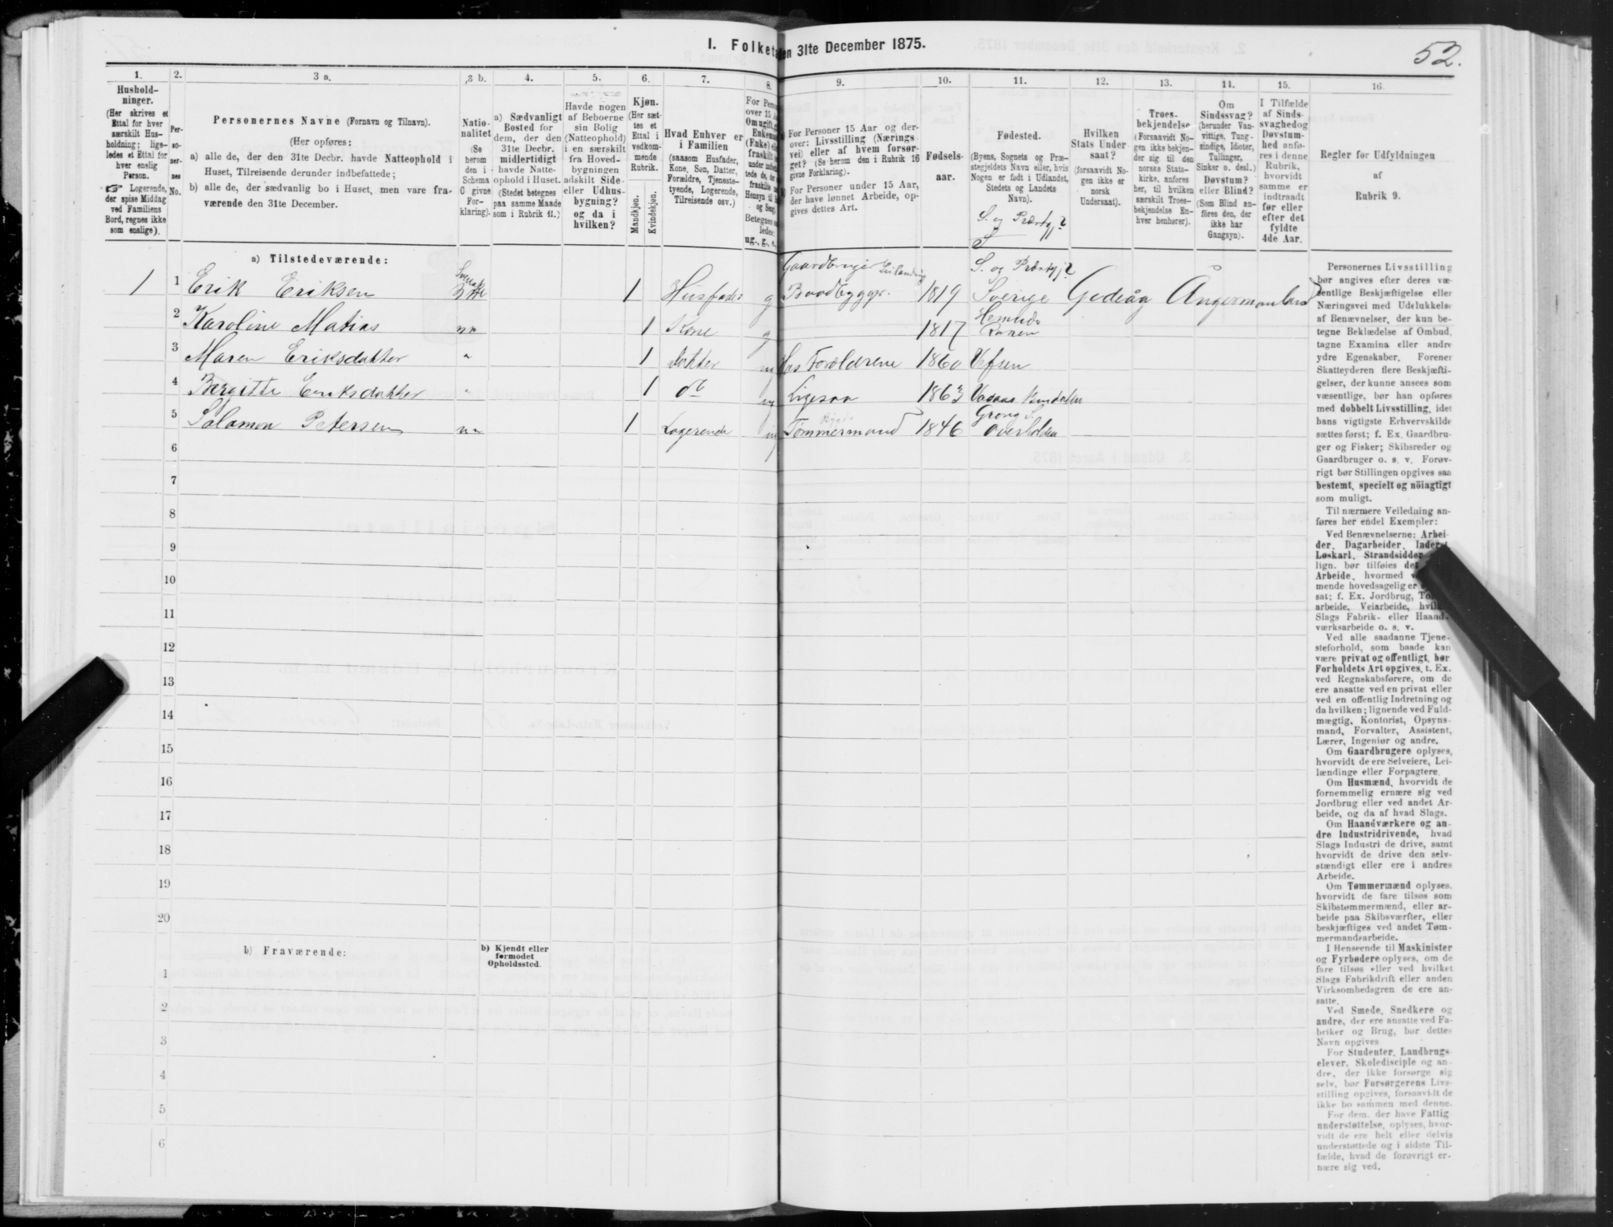 I. Folketa en 31te December 1875.
52.
1. 2. 3 a. 3 b. 4. 5. 6. 7. 8. 9. 10. 11. 12. 13. 14. 15. 16.
Hushold-
ninger.
(Her skrives et
Ettal for hver
særskilt Hus-
holdning; lige-
ledes et Ettal for
hver enslig
Person.
☞ Logerende,
der spise Middag
ved Familiens
Bord, regnes ikke
som enslige).
Per-
so-
ner-
nes
No.
Personernes Navne (Fornavn og Tilnavn).
(Her opføres:
a) alle de, der den 31te Decbr. havde Natteophold i
Huset, Tilreisende derunder indbefattede;
b) alle de, der sædvanlig bo i Huset, men vare fra-
værende den 31te December.
Natio-
nalitet
(Se
herom
den i
Schema
C givne
For-
klaring).
a) Sædvanligt
Bosted for
dem, der den
31te Decbr.
midlertidigt
havde Natte-
ophold i Huset.
(Stedet betegnes
paa samme Maade
som i Rubrik 11.)
Havde nogen
af Beboerne
sin Bolig
(Natteophold)
i en særskilt
fra Hoved-
bygningen
adskilt Side-
eller Udhus-
bygning?
og da i
hvilken?
Kjøn.
(Her sæt-
tes et
Ettal i
vedkom-
mende
Rubrik.
Mandkjøn.
Kvindekjøn.
Hvad Enhver er
i Familien
(saasom Husfader,
Kone, Søn, Datter,
Forældre, Tjeneste-
tyende, Logerende,
Tilreisende osv.)
For Personer 15 Aar og der-
over: Livsstilling (Nærings-
vei) eller af hvem forsør-
get? (Se herom den i Rubrik 16
givne Forklaring).
For Personer under 15 Aar,
der have lønnet Arbeide, op-
gives dettes Art.
Fødsels-
aar.
Fødested.
(Byens, Sognets og Præ-
stegjeldets Navn eller, hvis
Nogen er født i Udlandet,
Stedets og Landets
Navn).
S. og Præstgj?
Hvilken
Stats Under
saat?
(forsaavidt No-
gen ikke er
norsk
Undersaat).
Troes-
bekjendelse
(Forsaavidt No-
gen ikke bekjen-
der sig til den
norske Stats-
kirke, anføres
her, til hvilken
særskilt Troes-
bekjendelse En-
hver henhører).
Om
Sindssvag?
(herunder Van-
vittige, Tung-
sindige, Idioter,
Tullinger,
Sinker o. desl.)
Døvstum?
eller Blind?
(Som Blind an-
føres den, der
ikke har
Gangsyn).
I Tilfælde
af Sinds-
svaghedog
Døvstum-
hed anfø-
res i denne
Rubrik,
hvorvidt
samme er
indtraadt
før eller
efter det
fyldte
4de Aar.
Regler for Udfyldningen
af
Rubrik 9.
a) Tilstedeværende:
Gaardbruger Leilending S. og Præstgj?
1 1 Erik Eriksen 1 Husfader g Baadbygger 1819 Sverige Gedeåa Ångermanland
2 Karoline Matias nn 1 Kone g 1817
3 Maren Eriksdatter " 1 Datter Hos Forældrene 1860 Vefsen
4 Birgitte Eriksdatter " 1 do ug Ligesaa 1863
5 Salamon Petersen nn 1 Logerende ug Tømmermand 1846 Grong S. Overhalden
6
7
8
9
10
11
12
13
14
15
16
17
18
19
20
b) Fraværende:
b) Kjendt eller
formodet
Opholdssted.
1
2
3
4
5
6
Personernes Livsstilling
bør angives efter deres væ-
sentlige Beskjæftigelse eller
Næringsvei med Udelukkelse
af Benævnelser, der kun be-
tegne Beklædelse af Ombud,
tagne Examina eller andre
ydre Egenskaber. Forener
Skatteyderen flere Beskjæfti-
gelser, der kunne ansees som
væsentlige, bør han opføres
med dobbelt Livsstilling, idet
hans vigtigste Erhvervskilde
sættes først; f. Ex. Gaardbru-
ger og Fisker; Skibsreder og
Gaardbruger o. s. v. Forøv-
rigt bør Stillingen opgives saa
bestemt, specielt og nöiagtigt
som muligt.
Til nærmere Veiledning an-
føres her endel Exempler:
Ved Benævnelserne: Arbei-
der, Dagarbeider, Inderst,
Løskarl, Strandsidder
lign. bør tilføies det
Arbeide, hvormed
mende hovedsagelig er
sat; f. Ex. Jordbrug,
arbeide, Veiarbeide, hvilket
Slags Fabrik- eller Haand-
værksarbeide o. s. v.
Ved alle saadanne Tjene-
steforhold, som baade kan
være privat og offentligt, bør
Forholdets Art opgives, t. Ex.
ved Regnskabsførere, om de
ere ansatte ved en privat eller
ved en offentlig Indretning og
da hvilken; lignende ved Fuld-
mægtig, Kontorist, Opsyns-
mand, Forvalter, Assistent,
Lærer, Ingeniør og andre.
Om Gaardbrugere oplyses,
hvorvidt de ere Selveiere, Lei-
lændinge eller Forpagtere.
Om Husmænd, hvorvidt de
fornemmelig ernære sig ved
Jordbrug eller ved andet Ar-
beide, og da af hvad Slags.
Om Haandværkere og an-
dre Industridrivende, hvad
Slags Industri de drive, samt
hvorvidt de drive den selv-
stændigt eller ere i andres
Arbeide.
Om Tømmermænd oplyses,
hvorvidt de fare tilsøs som
Skibstømmermænd, eller ar-
beide paa Skibsværfter, eller
beskjæftiges ved andet Tøm-
mermandsarbeide.
I Henseende til Maskinister
og Fyrbødere oplyses, om de
fare tilsøs eller ved hvilket
Slags Fabrikdrift eller anden
Virksomhedsgren de ere an-
satte.
Ved Smede, Snedkere og
andre, der ere ansatte ved Fa-
briker og Brug, bør dettes
Navn opgives
For Studenter, Landbrugs-
elever, Skoledisciple og an-
dre, der ikke forsørge sig
selv, bør Forsørgerens Livs-
stilling opgives, forsaavidt de
ikke bo sammen med denne.
For dem, der have Fattig-
understøttelse, oplyses, hvor-
vidt de ere helt eller delvis
understøttede og i sidste Til-
fælde, hvad de forøvrigt er-
nære sig ved.